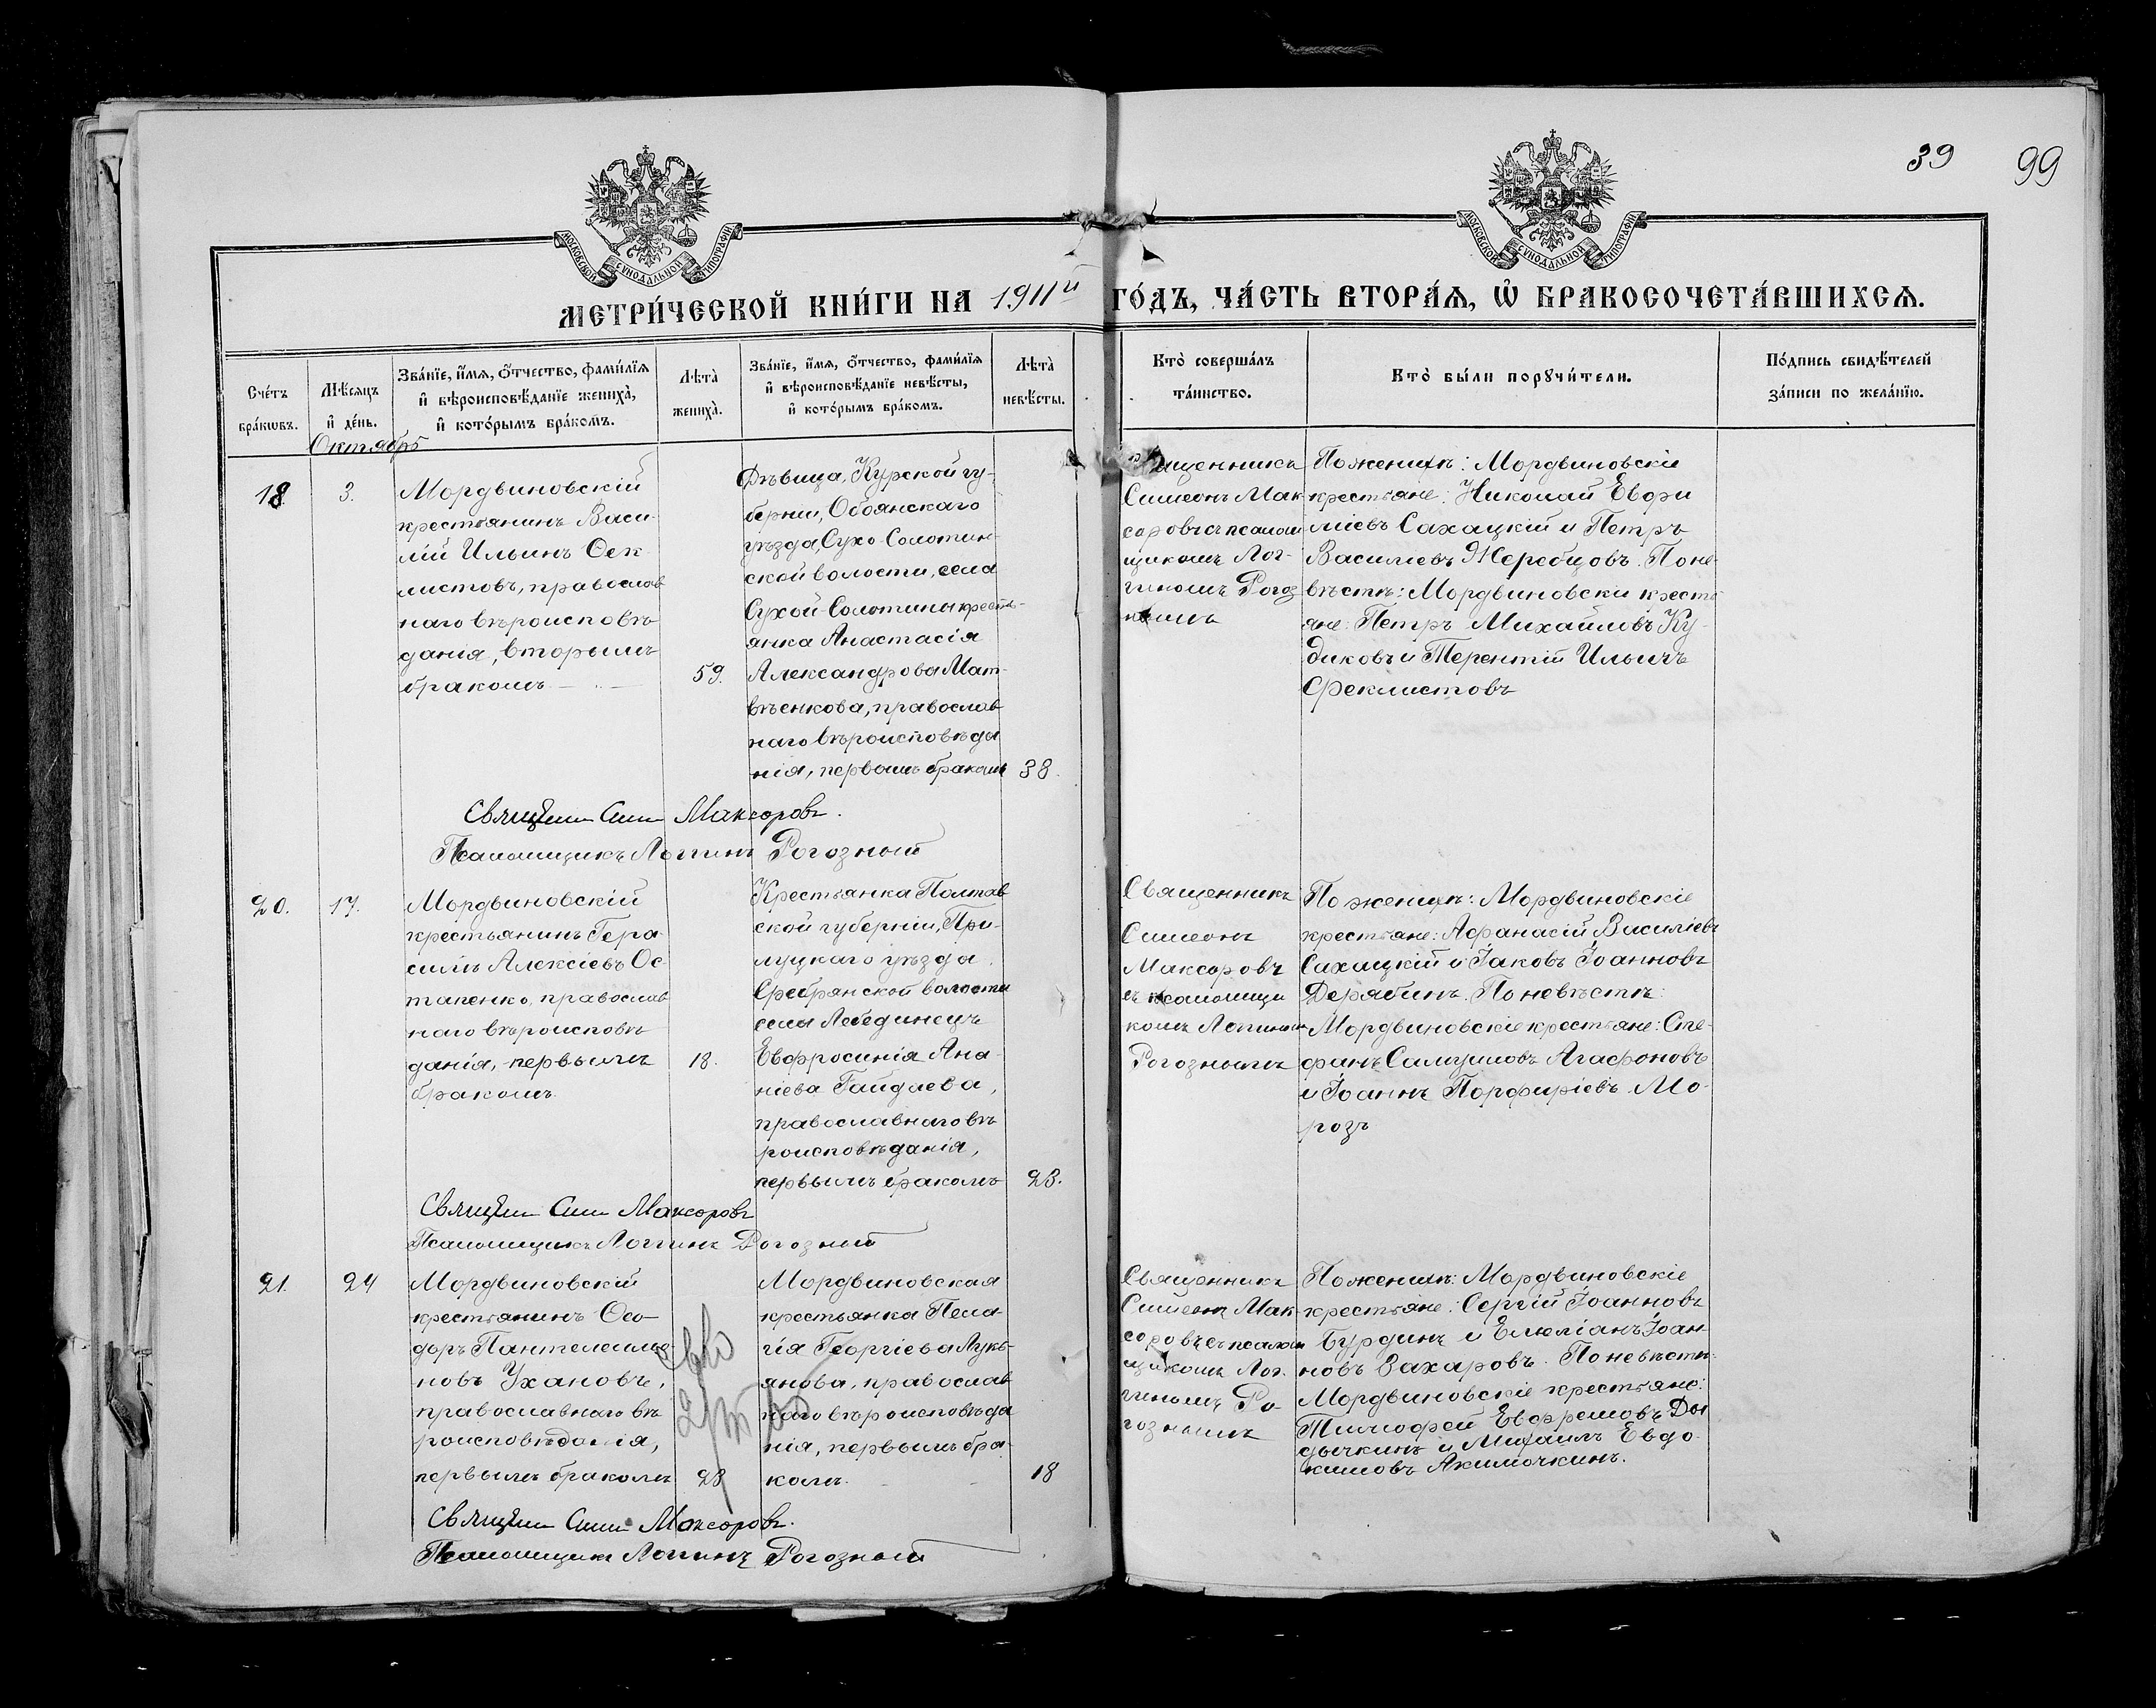 39 99
МОСКОВСКОЙ СѴНОДАЛЬНОЙ ТИПОГРАФІИ
МОСКОВСКОЙ СѴНОДАЛЬНОЙ ТИПОГРАФІИ
МЕТРИ́ЧЕСКОЙ КНИ́ГИ НА 1911й ГО́ДЪ, ЧА́СТЬ ВТОРА́Я, Ѡ҆ БРАКОСОЧЕТА́ВШИХСѦ.
Сче́тъ
бра́кωвъ.
Мѣ́сяцъ
и҆ де́нь.
Зва́нїе, и҆́мѧ, ѻ҆́тчество, фами́лїѧ
и҆ вѣроисповѣ́данїе жениха̀,
и҆ кото́рымъ бра́комъ.
Лѣта̀
жениха̀.
Зва́нїе, и҆́мѧ, ѻ҆́тчество, фами́лїѧ
и҆ вѣроисповѣ́данїе невѣ́сты,
и҆ кото́рымъ бра́комъ.
Лѣта̀
невѣ́сты.
Кто̀ соверша́лъ
та́инство.
Кто̀ бы́ли порꙋчи́тели.
По́дпись свидѣ́телей
за́писи по жела́нїю.
Октябрь
18.
3.
Мордвиновскій
крестьянинъ Васи-
лій Ильинъ Ѳек-
листовъ, православ
наго вѣроисповѣ
данія, вторымъ
бракомъ
59.
Дѣвица, Курской гу-
берніи, Обоянскаго
уѣзда, Сухо-Солотин-
ской волости, села
Сухой-Солотины кресть-
янка Анастасія
Александрова Мат-
вѣенкова, православ
наго вѣроисповѣда
нія, первымъ бракомъ
38.
Священникъ
Симеонъ Мак
соровъ съ псалом
щикомъ Лог-
гиномъ Рогоз
нымъ
По женихѣ: Мордвиновскіе
крестьяне: Николай Евфи
міевъ Сахацкій и Петръ
Василіевъ Жеребцовъ. По не-
вѣстѣ: Мордвиновскіе кресть
яне: Петръ Михайловъ Ку-
диковъ и Терентій Ильичъ
Феклистовъ
Священ Сим Максоровъ.
Псаломщикъ Логгинъ Рогозный
20.
17.
Мордвиновскій
крестьянинъ Гера-
симъ Алексіевъ Ос
тапенко, православ
наго вѣроисповѣ
данія, первымъ
бракомъ
18.
Крестьянка Полтав
ской губерніи, При-
луцкаго уѣзда,
Сребрянской волости
села Лебединецъ
Евфросинія Ана-
ніева Гайдаева,
православнаго вѣ
роисповѣданія,
первымъ бракомъ
23.
Священникъ
Симеонъ
Максоровъ
съ псаломщи
комъ Логгиномъ
Рогознымъ
По женихѣ: Мордвиновскіе
крестьяне: Афанасій Василіевъ
Сахацкій и Іаковъ Іоанновъ
Дерябинъ. По невѣстѣ:
Мордвиновскіе крестьяне: Сте-
фанъ Агафоновъ
и Іоаннъ Порфиріевъ Мо-
розъ
Священ Сим Максоровъ
Псаломщикъ Логгинъ Рогозный
21.
24
Мордвиновскій
крестьянинъ Ѳео-
доръ Пантелеимо-
новъ Ухановъ,
православнаго вѣ
роисповѣданія,
первымъ бракомъ
23
Мордвиновская
крестьянка Пела-
гія Георгіева Лукь-
янова, православ
наго вѣроисповѣда
нія, первымъ бра-
комъ.
18
Священникъ
Симеонъ Мак-
соровъ съ псалом
щикомъ Лог-
гиномъ Ро-
гознымъ
По женихѣ: Мордвиновскіе
крестьяне: Сергій Іоанновъ
Бурдинъ и Емеліанъ Іоан-
новъ Захаровъ. По невѣстѣ:
Мордвиновскіе крестьяне:
Тимофей Евфремовъ Ды
дычкинъ и Михаилъ Евдо-
кимовъ Акимочкинъ.
Священ Сим Максоровъ.
Псаломщикъ Логгинъ Рогозный